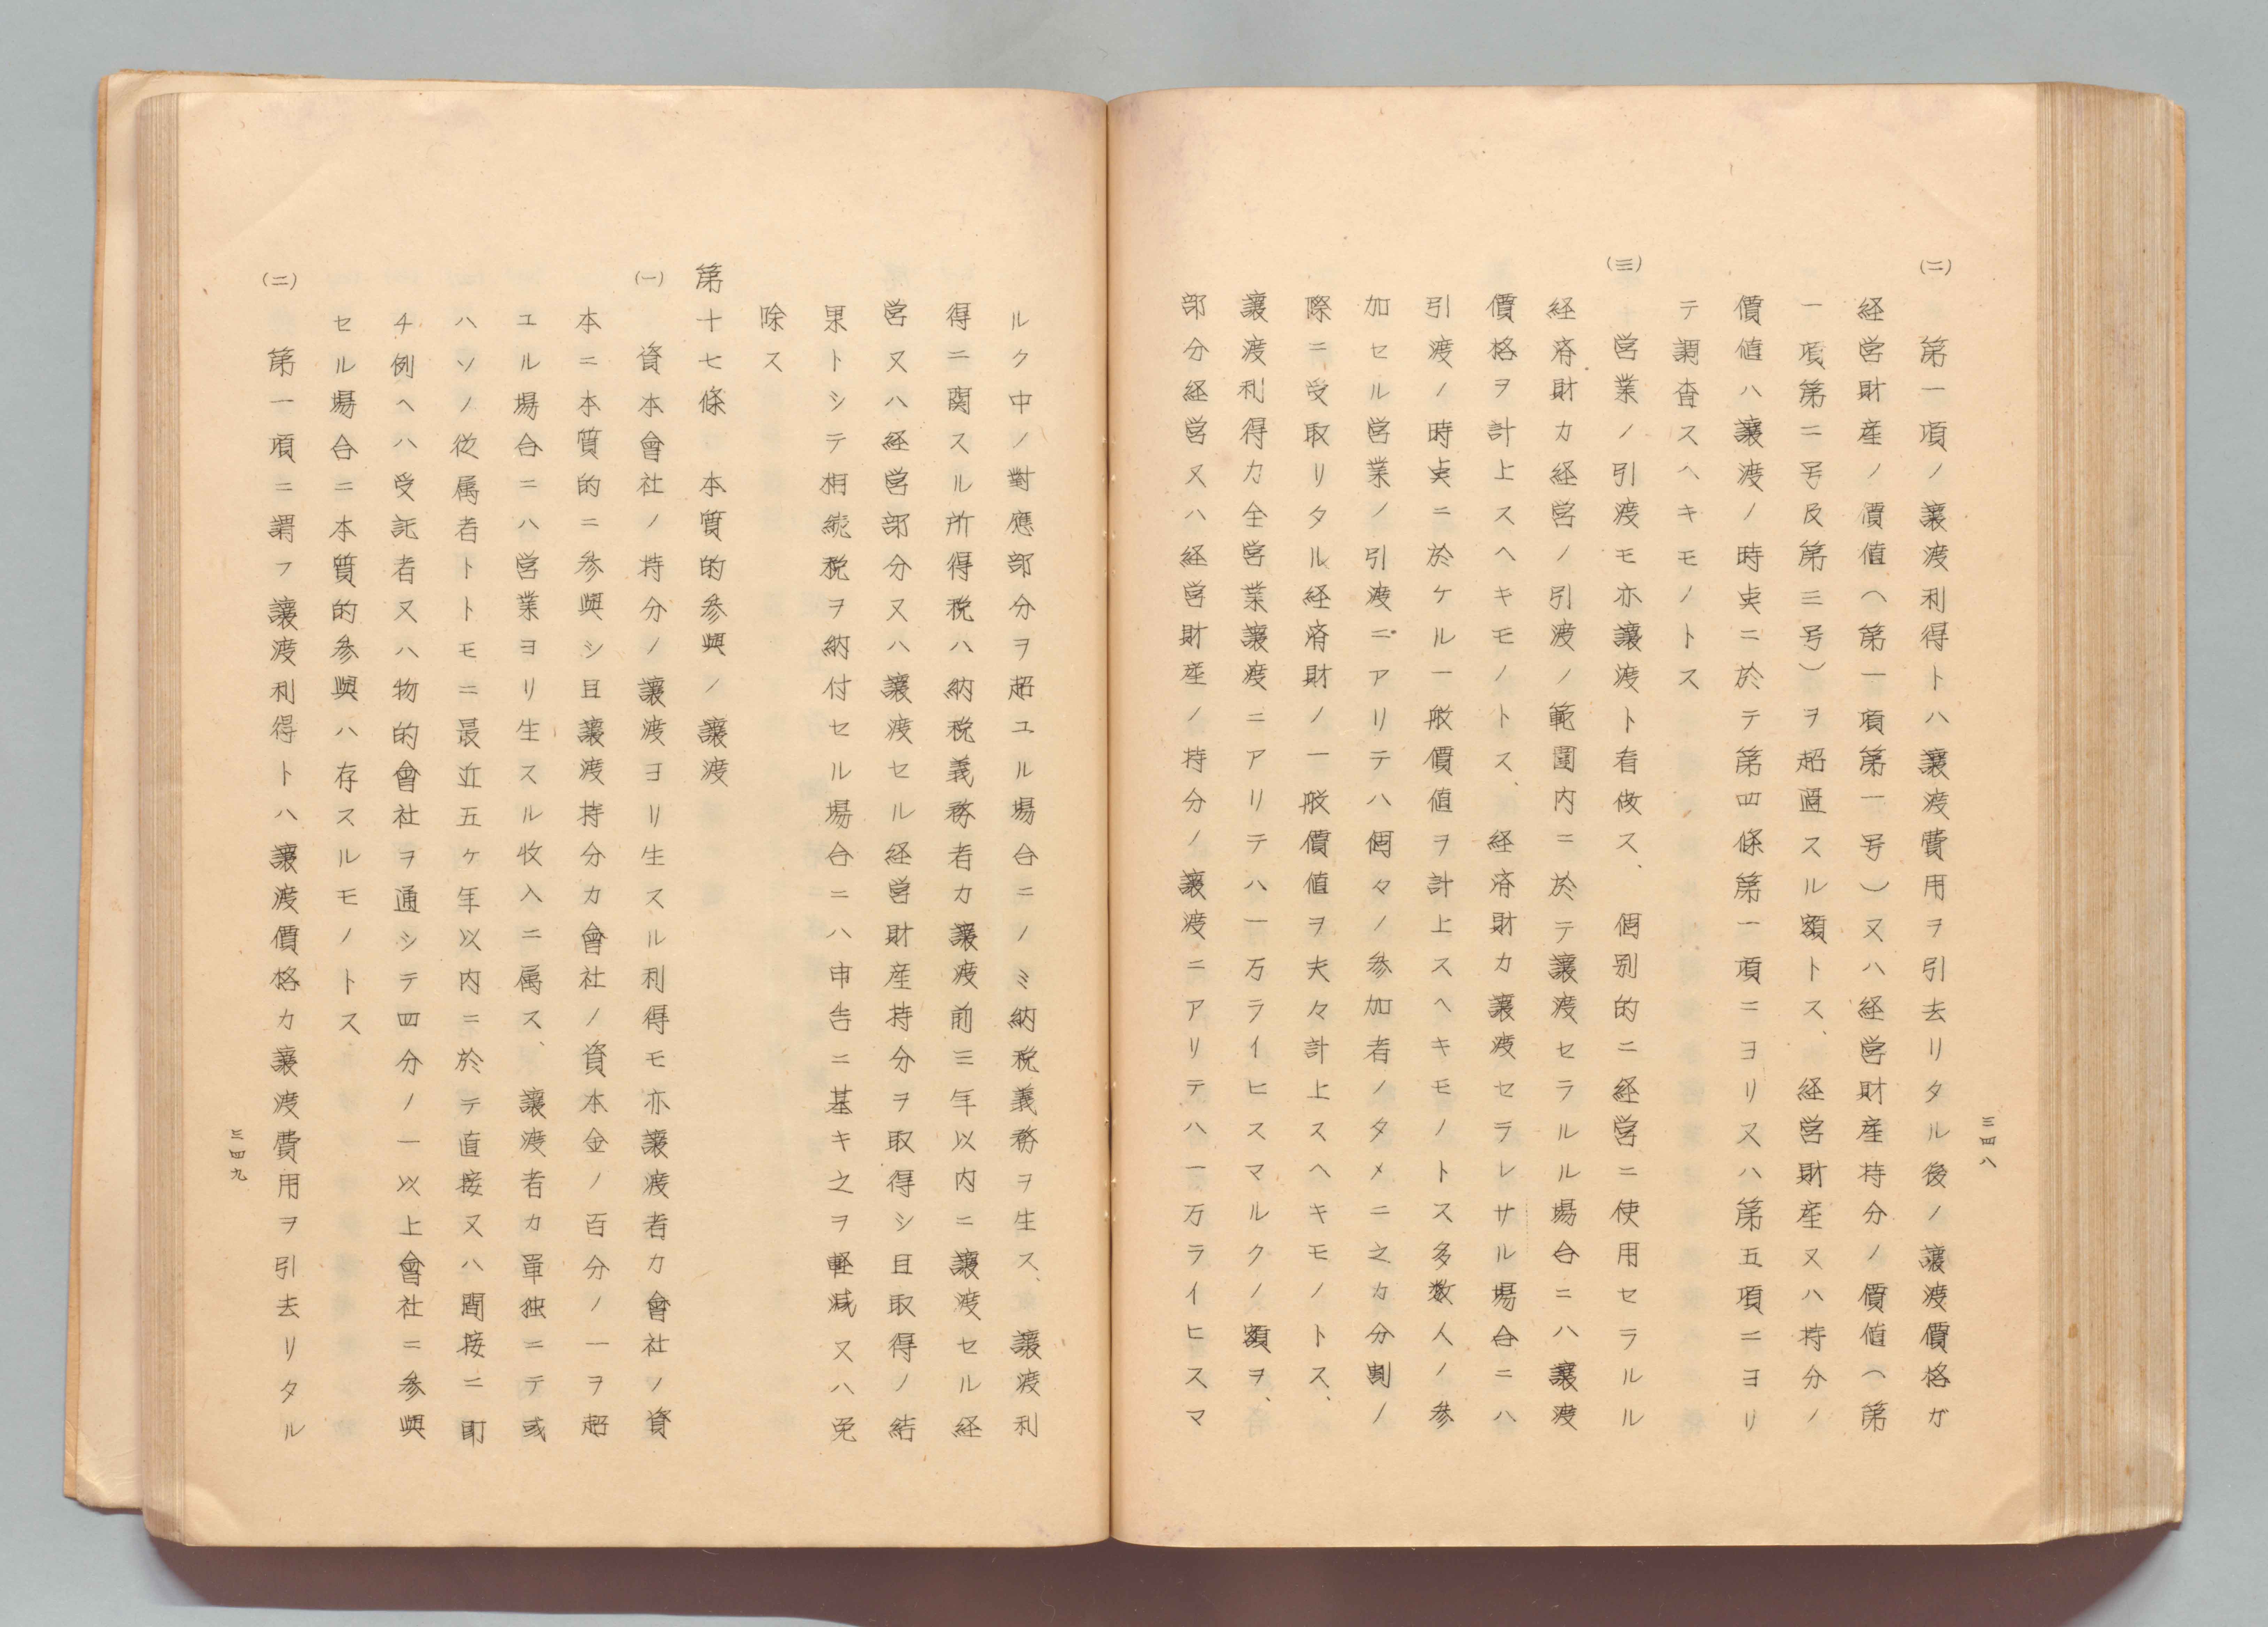 三四八
(二)　第一項ノ讓渡利得トハ讓渡費用ヲ引去リタル後ノ讓渡價格ガ
経営財産ノ價値(第一項第一号)又ハ経営財産持分ノ價値(第
一項第二号及第三号)ヲ超過スル額トス、経営財産又ハ持分ノ
價値ハ讓渡ノ時奌ニ於テ第四條第一項ニヨリ又ハ第五項ニヨリ
テ調査スヘキモノトス
(三)　営業ノ引渡モ亦讓渡ト看做ス、個別的ニ経営ニ使用セラルル
経済財カ経営ノ引渡ノ範圍内ニ於テ讓渡セラルル場合ニハ讓渡
價格ヲ計上スヘキモノトス、経済財カ讓渡セラレサル場合ニハ
引渡ノ時奌ニ於ケル一般價値ヲ計上スヘキモノトス多数人ノ参
加セル営業ノ引渡ニアリテハ個々ノ参加者ノタメニ之カ分割ノ
際ニ受取リタル経済財ノ一般價値ヲ夫々計上スヘキモノトス、
讓渡利得カ全営業讓渡ニアリテハ一万ライヒスマルクノ額ヲ、
部分経営又ハ経営財産ノ持分ノ讓渡ニアリテハ一万ライヒスマ
ルク中ノ對應部分ヲ超ユル場合ニノミ納税義務ヲ生ス、讓渡利
得ニ関スル所得税ハ納税義務者カ讓渡前三年以内ニ讓渡セル経
営又ハ経営部分又ハ讓渡セル経営財産持分ヲ取得シ且取得ノ結
果トシテ相続税ヲ納付セル場合ニハ申告ニ基キ之ヲ軽減又ハ免
除ス
第十七條　本質的参與ノ讓渡
(一)　資本會社ノ持分ノ讓渡ヨリ生スル利得モ亦讓渡者カ會社ノ資
本ニ本質的ニ参與シ且讓渡持分カ會社ノ資本金ノ百分ノ一ヲ超
ユル場合ニハ営業ヨリ生スル收入ニ属ス、讓渡者カ單独ニテ或
ハソノ従属者トトモニ最近五ケ年以内ニ於テ直接又ハ間接ニ即
チ例ヘハ受託者又ハ物的會社ヲ通シテ四分ノ一以上會社ニ参與
セル場合ニ本質的参與ハ存スルモノトス
(二)　第一項ニ謂フ讓渡利得トハ讓渡價格カ讓渡費用ヲ引去リタル
三四九